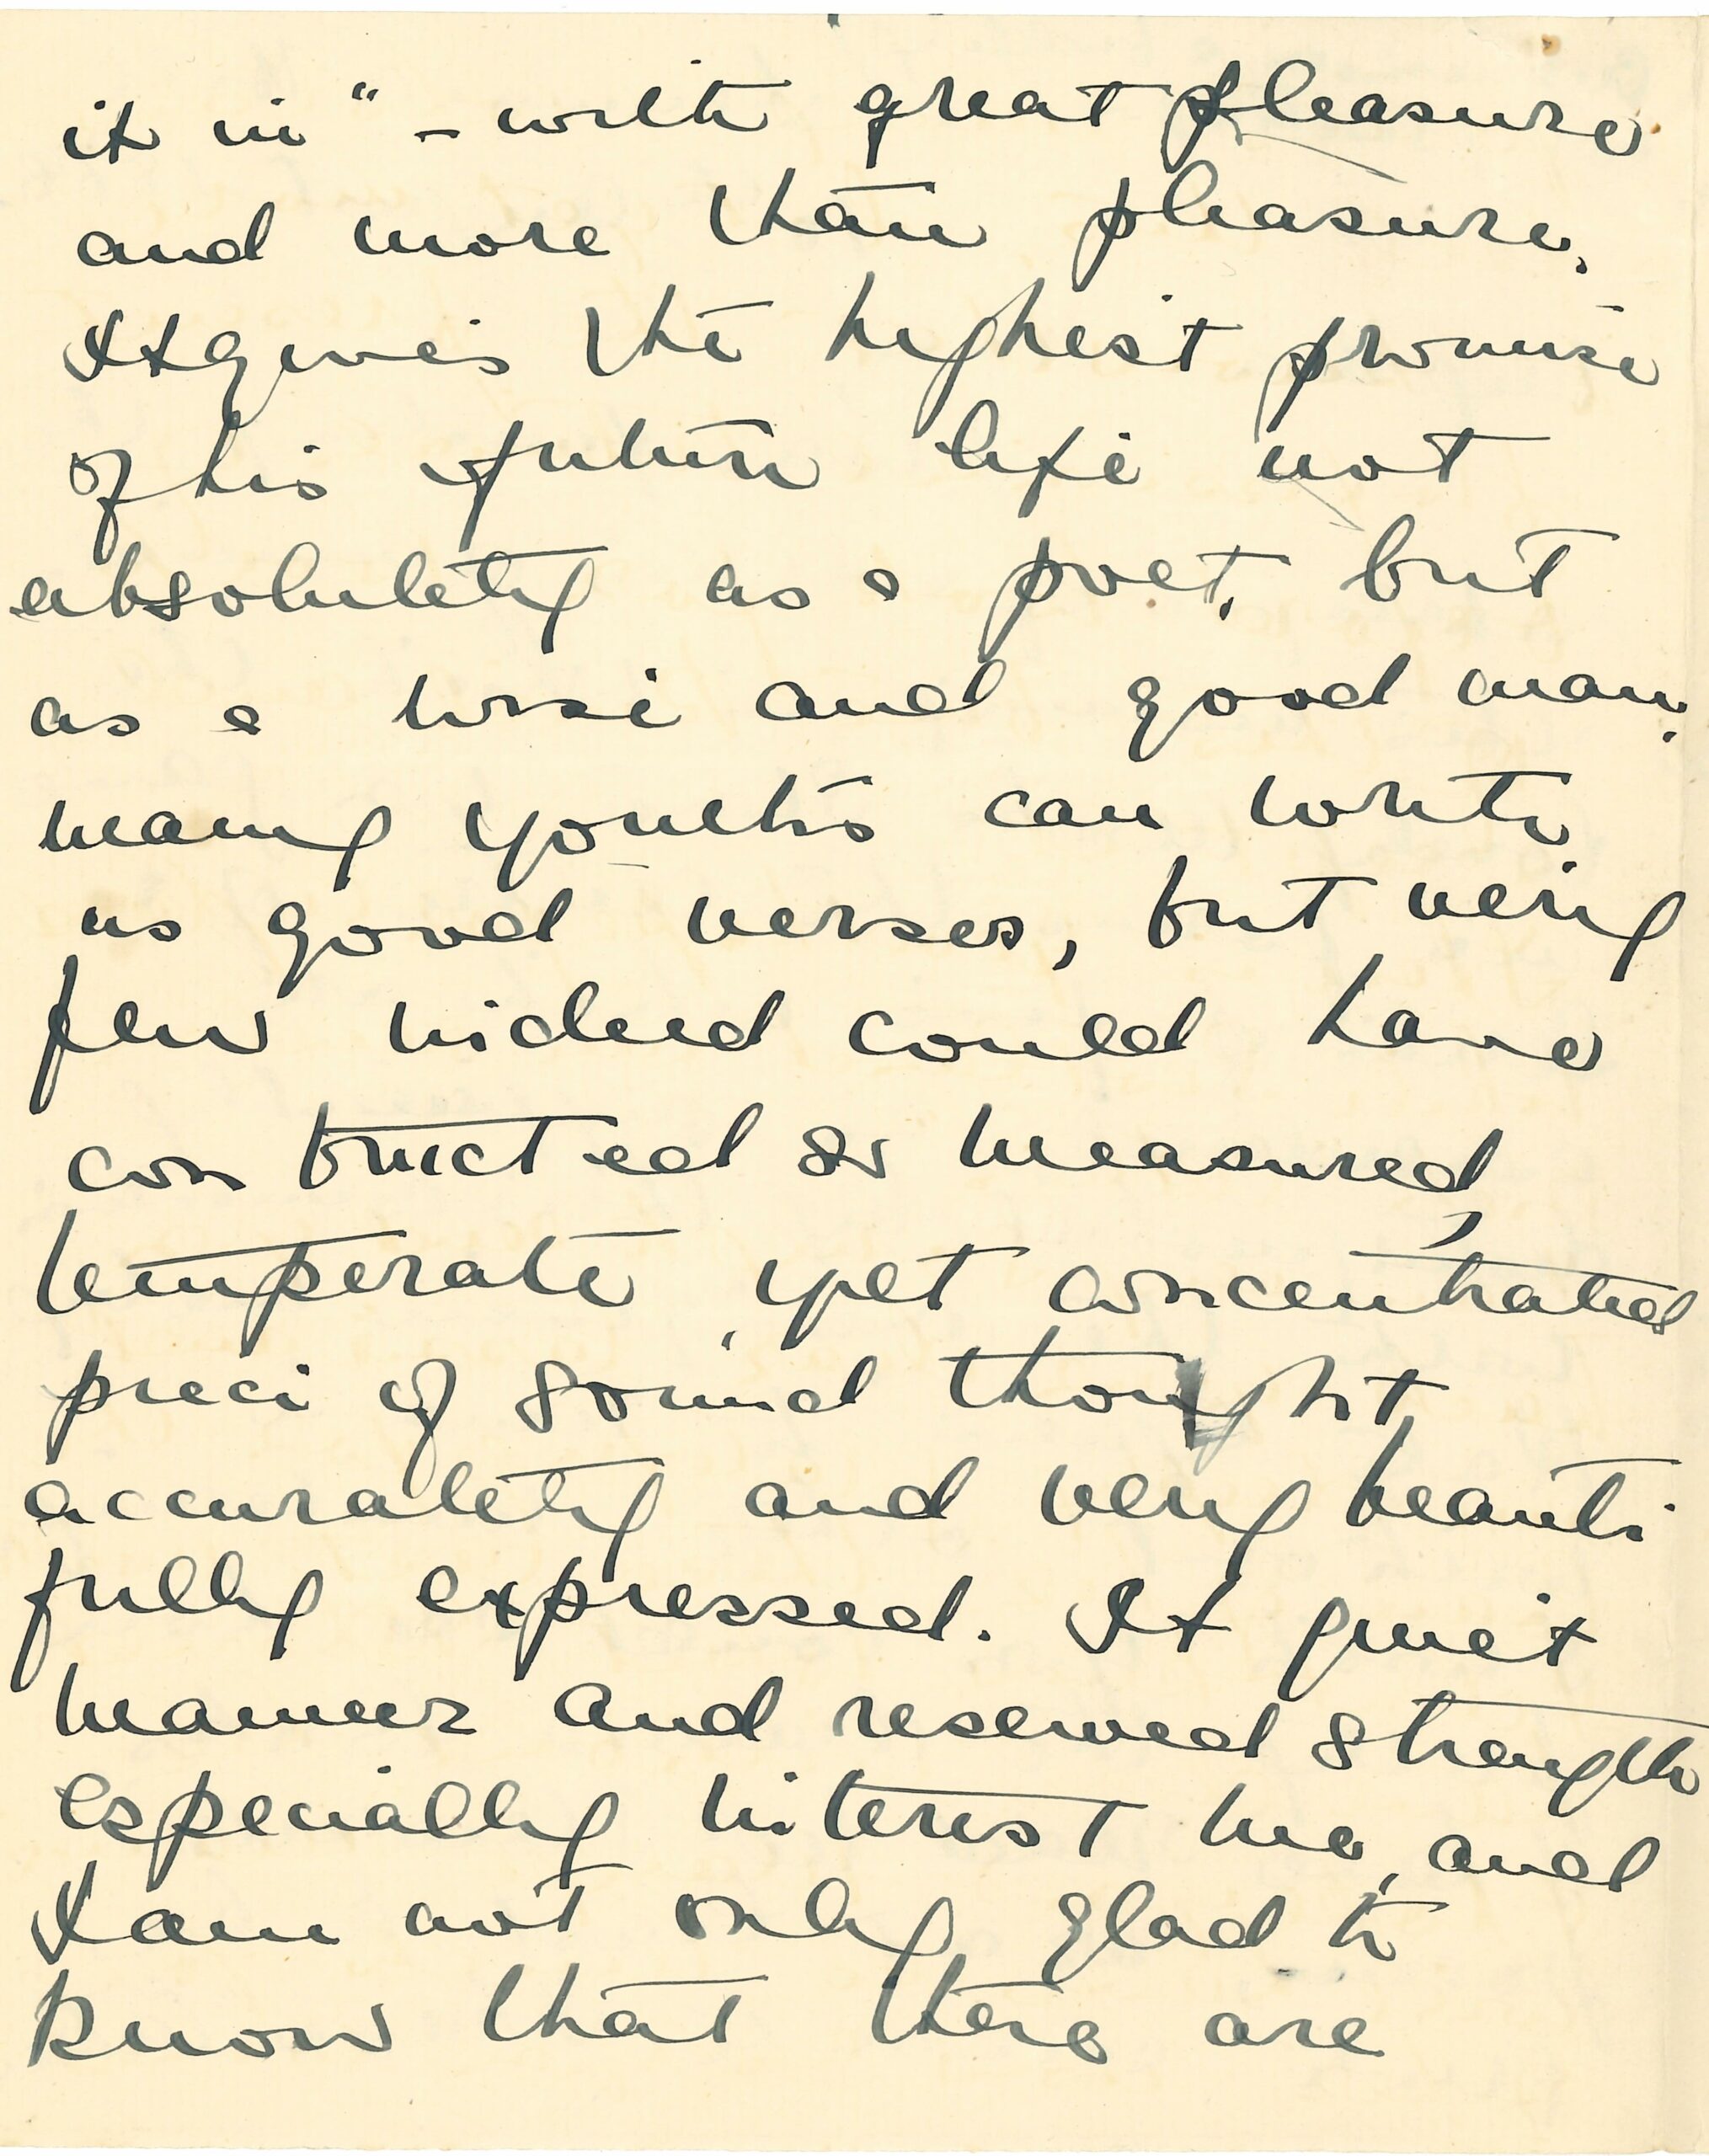 it in" - with great pleasure
and more than pleasure.
It gives the highest promise
of his future life not
absolutely as a poet, but
as a wise and good man.
many youths can write
as good verses, but very
few indeed could have
constructed so measured,
temperate, yet concentrated
piece of sound thought
accurately and very beauti
fully expressed. It quiet
manner and reserved strength
especially interest me, and
I am not only glad to
know that there are